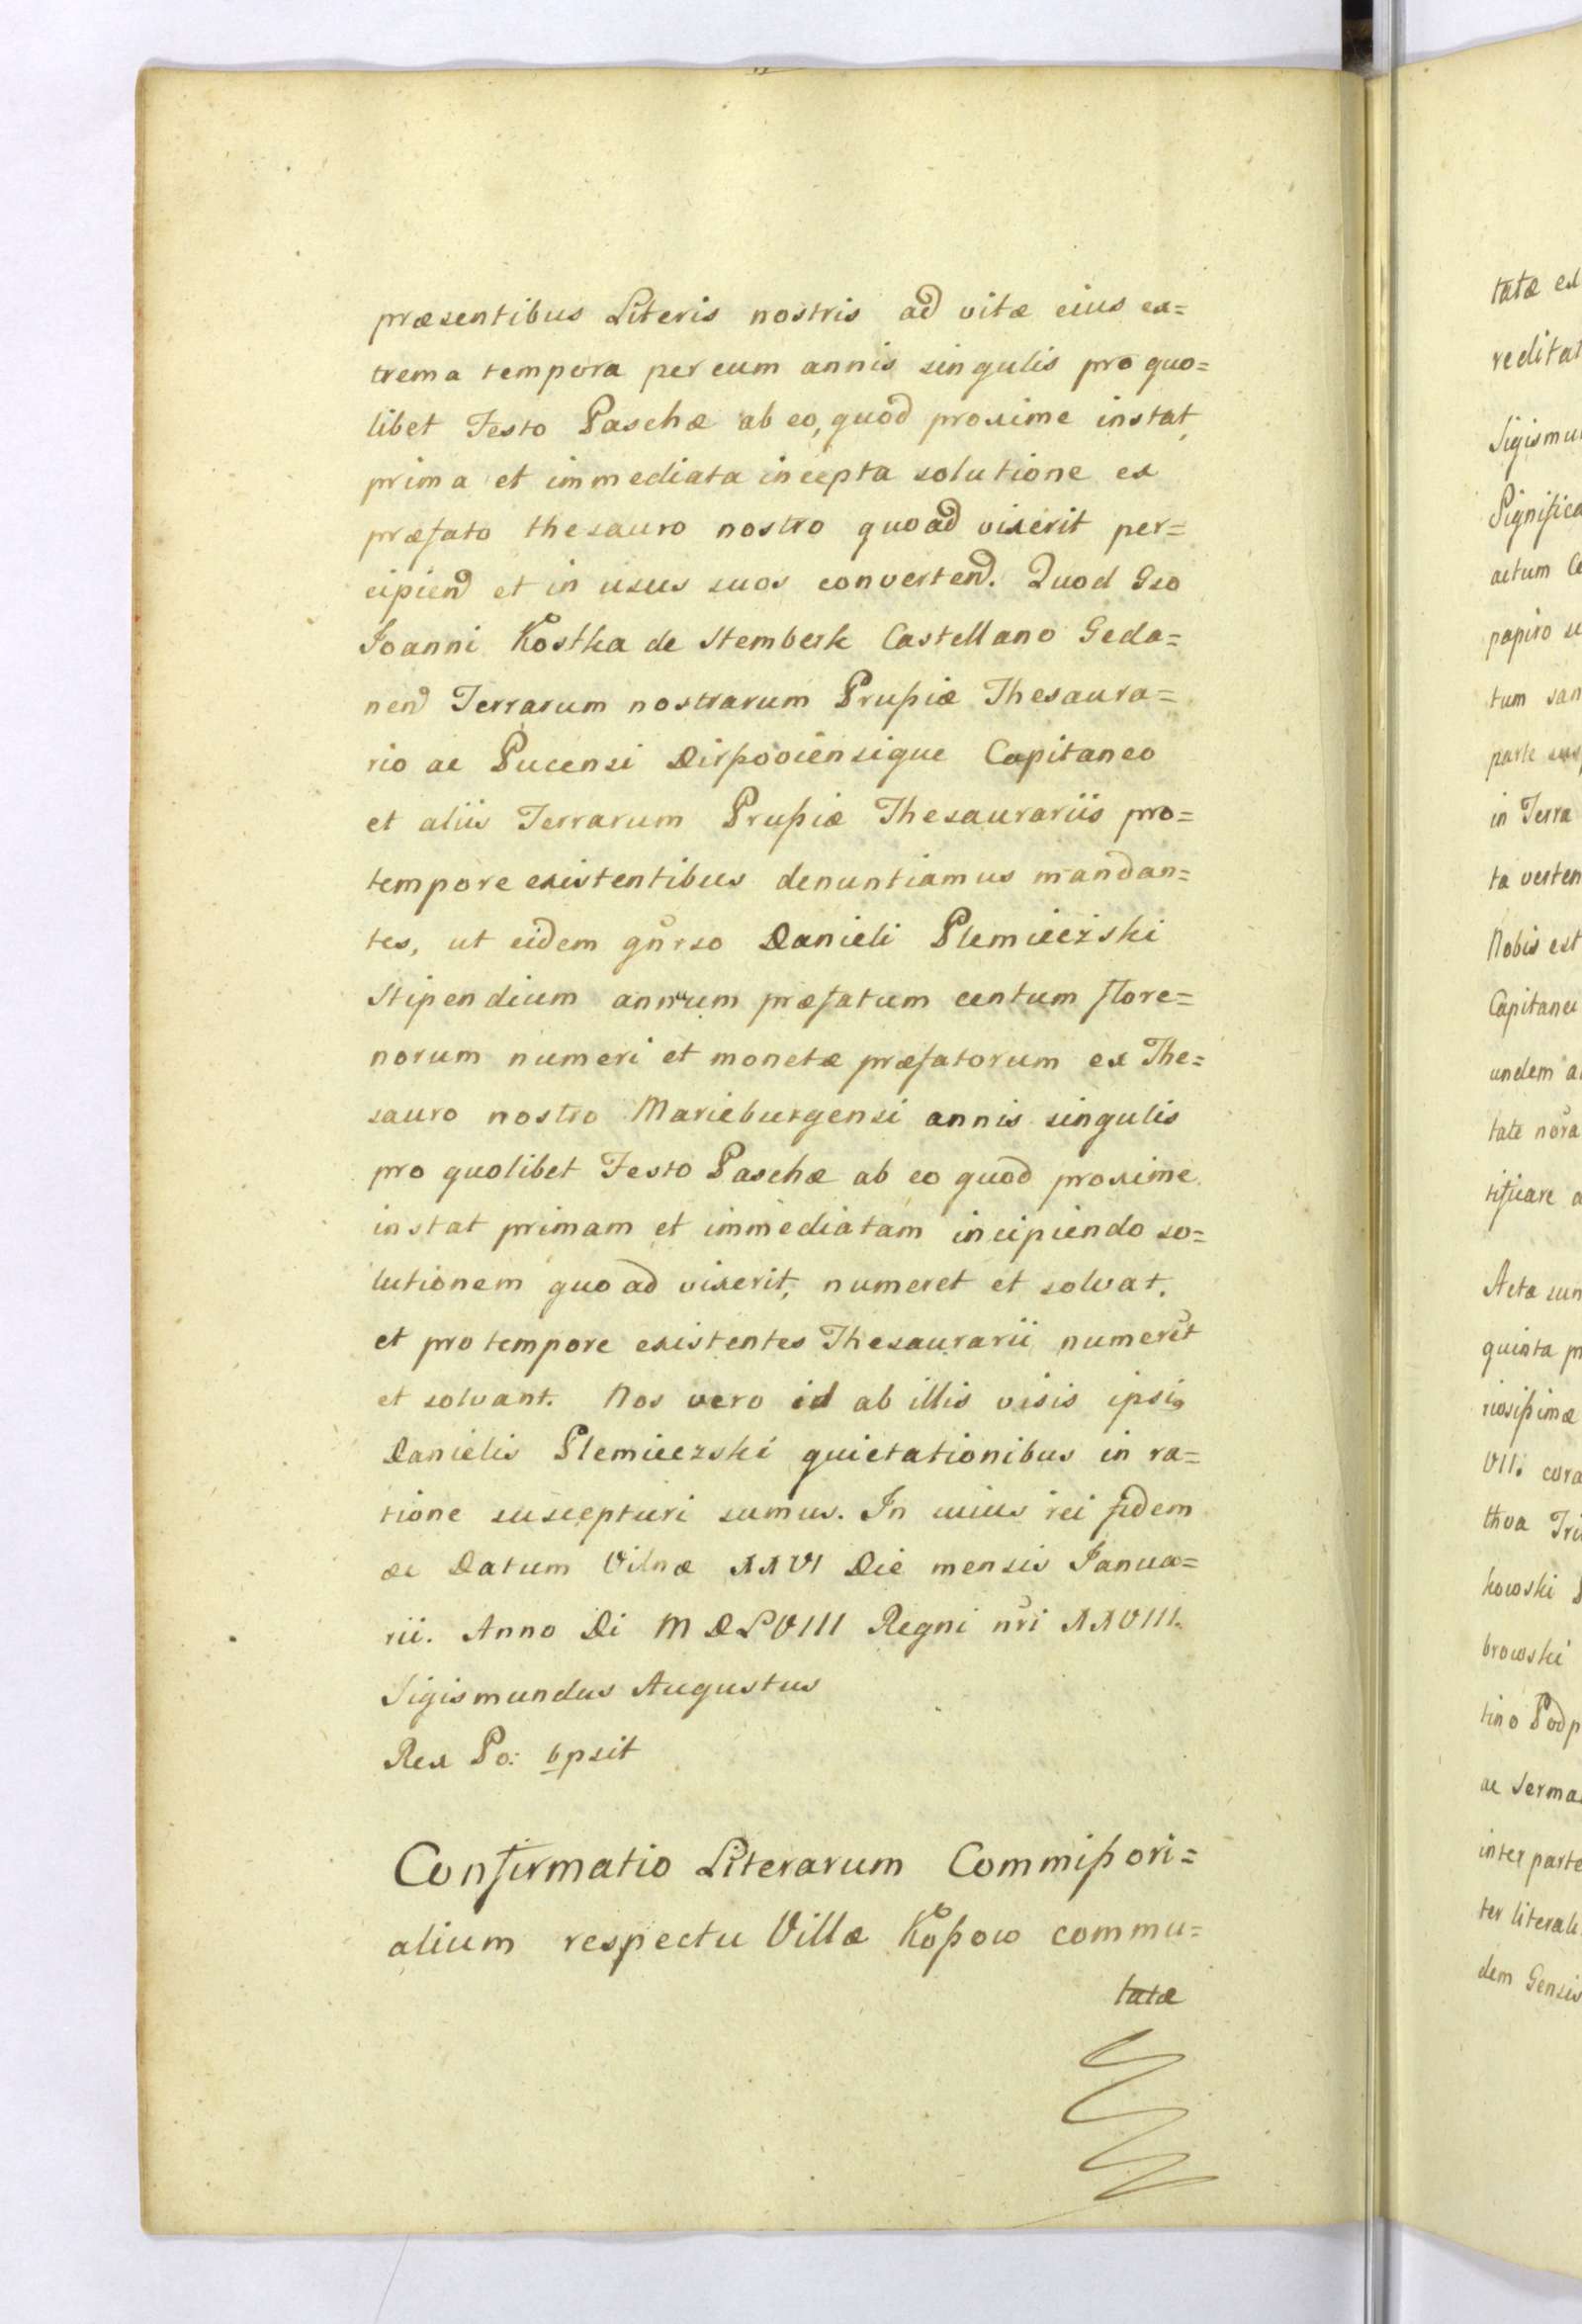 præsentibus Literis nostris ad vitæ eius ex=
trema tempora per eum annis singulis pro quo=
libet Festo Paschæ ab eo, quod proxime instat,
prima et immediata incepta solutione ex
præfato thesauro nostro quoad vixerit per=
cipiend et in usus suos convertend. Quod Gso
Joanni Kostka de Stemberk Castellano Geda=
nen Terrarum nostrarum Prußiæ Thesaura=
rio ac Pucensi Dirßoviensique Capitaneo
et aliis Terrarum Prußiæ Thesaurariis pro=
tempore existentibus denuntiamus mandan=
tes, ut eidem gnrso Danieli Plemieczski
Stipendium annuum præfatum centum flore=
norum numeri et monetæ præfatorum ex The=
sauro nostro Marieburgensi annis singulis
pro quolibet Festo Paschæ ab eo quod proxime
instat primam et immediatam incipiendo so=
lutionem quoad vixerit, numeret et solvat,
et pro tempore existentes Thesaurarii numerēt
et solvant. Nos vero id ab illis visis ipsiꝰ
Danielis Plemieczski quietationibus in ra=
tione suscepturi sumus. In cuius rei fidem
ac Datum Vilnæ XXVI Die mensis Janua=
rii. Anno Di MDLVIII Regni nri XXVIII.
Sigismundus Augustus
Rex Po: spsit
Confirmatio Literarum Commißori=
alium respectu Villæ Koßow commu=
tatæ
tatæ ex
reditat
Sigismu
Significa
actum
papiro
tum san
parte
in Terra
ta verten
Nobis est
Capitanei
undem a
tate nora
tificare a
Acta sun
quinta p
riosißimæ
VII. cora
thva Tri
kowski
browski
tino Podp
ac Serma
inter parte
ter literali
dem Gensis